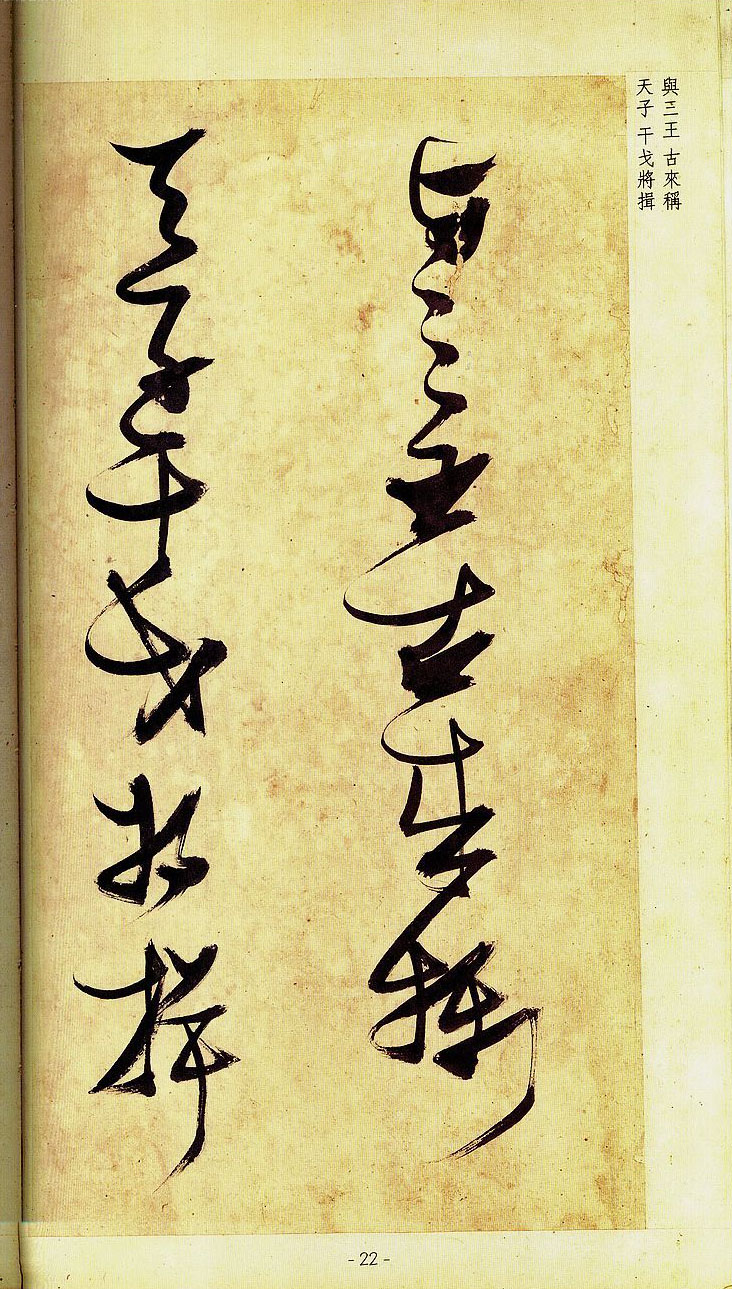 與三王 古來稱
天子 干戈將揖
與三王古來稱
天子干戈將揖
- 22 -